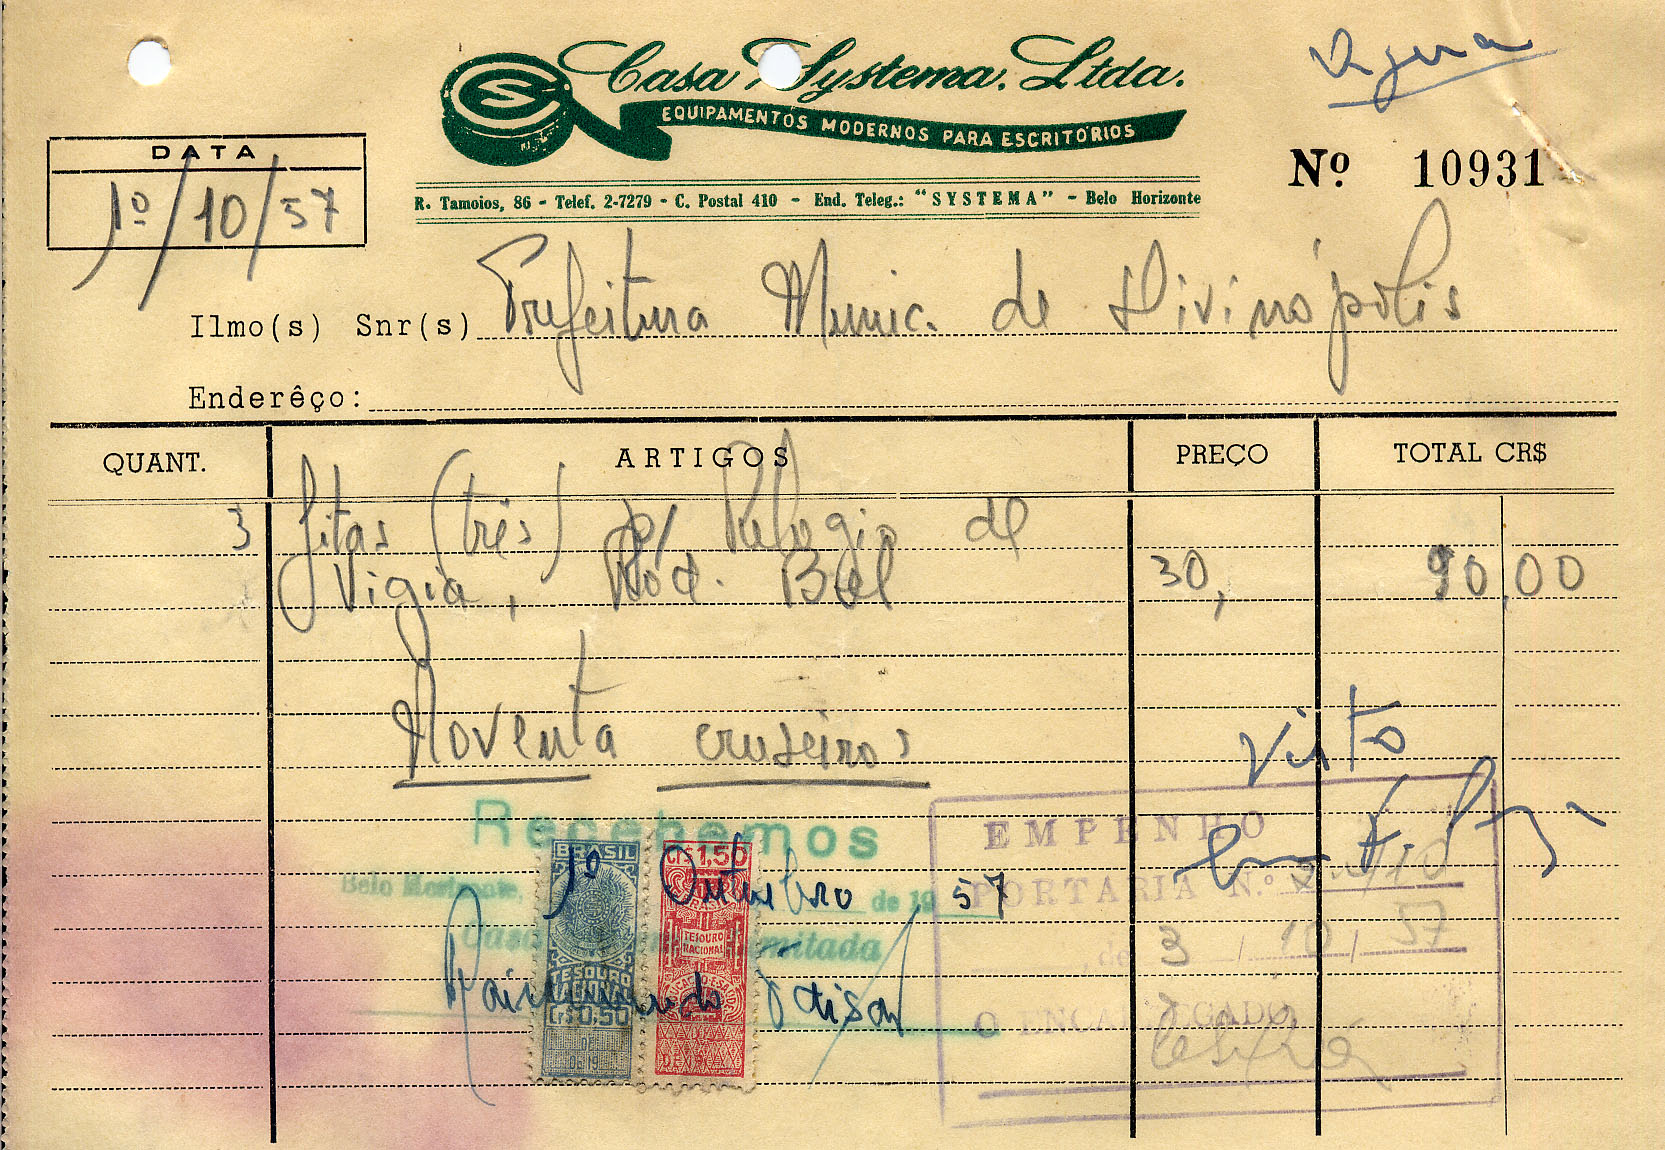 Casa Systema. Ltda.
EQUIPAMENTOS MODERNOS PARA ESCRITÓRIOS
Nº 10931
DATA
1º/10/57
R. Tamoios, 86 - Telef. 2-7279 - C. Postal 410 - End. Teleg.: "SYSTEMA" - Belo Horizonte
Ilmo(s) Snr(s) Prefeitura Munic. de Divinópolis
Enderêço:
QUANT. ARTIGOS PREÇO TOTAL CR$
3 fitas (três) p/ Relogio de
Vigia, Mod. Bel 30, 90,00
Noventa cruzeiros
Visto
Recebemos
EMPENHO
Belo Horizonte, 1º Outubro de 1957
PORTARIA N.º
Casa Limitada
, de 3 / 10 / 57
Raimundo
O ENCARREGADO
BRASIL
TESOURO
NACIONAL
Cr$ 0,50
DE
DE 19
Cr$ 1,50
BRASIL
TESOURO
NACIONAL
EDUCAÇÃO E SAÚDE